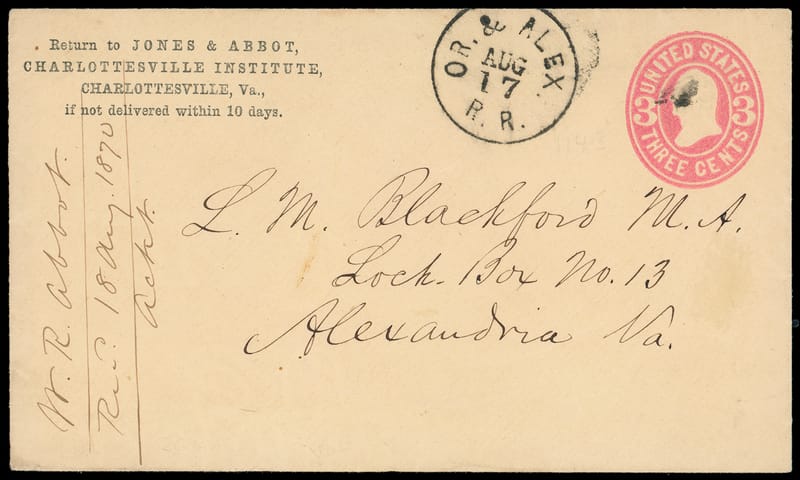 Return to JONES & ABBOT,
CHARLOTTESVILLE INSTITUTE,
CHARLOTTESVILLE, Va.,
if not delivered within 10 days.
OR. & ALEX.
AUG
17
R. R.
UNITED STATES
3 3
THREE CENTS
L. M. Blackford M. A.
Lock-Box No. 13
Alexandria Va.
W. R. Abbot.
Rec'd. 18 Aug. 1870